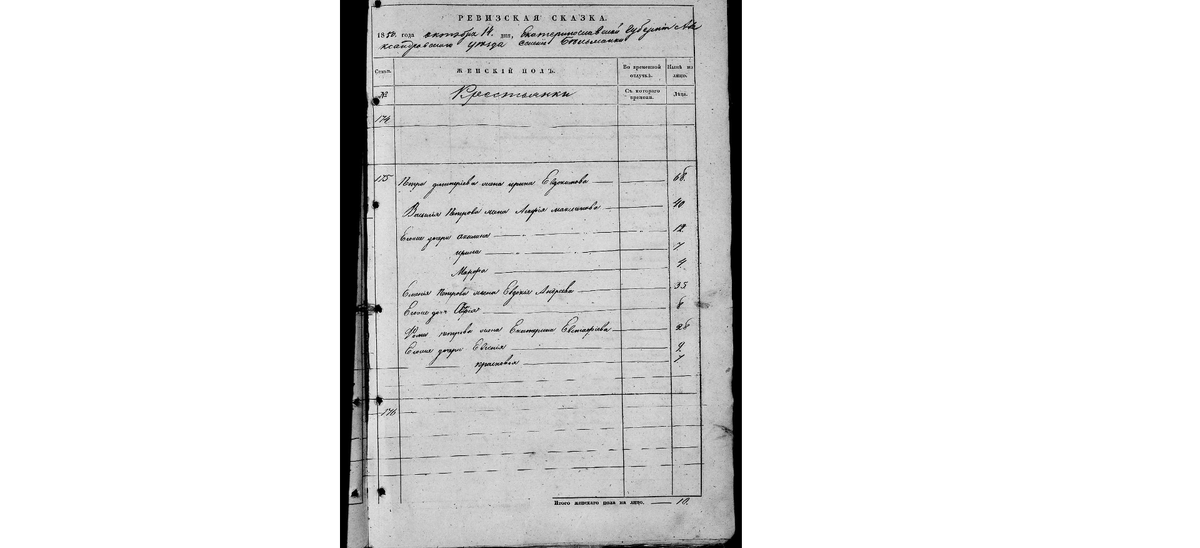 РЕВИЗСКАЯ СКАЗКА.
1850 года октября 14 дня, Екатеринославской Губернии Але
ксандровского уезда
Семьи. ЖЕНСКІЙ ПОЛЪ. Во временной отлучкѣ. Нынѣ на лицо.
№ Крестьянки Съ котораго времени. Лѣта.
174
175 Петра Дмитріева жена Ирина Евдокимова 68.
Василія Петрова жена Максимова 40
Егоже дочери Акилина 12
Ирина 7
Марфа 4.
Петрова жена Евдокія Андреева 35
Егоже дочь 6
Фомы Петрова жена Екатерина 26
Егоже дочери Евгенія 9.
7
176
Итого женскаго пола на лицо. 10.